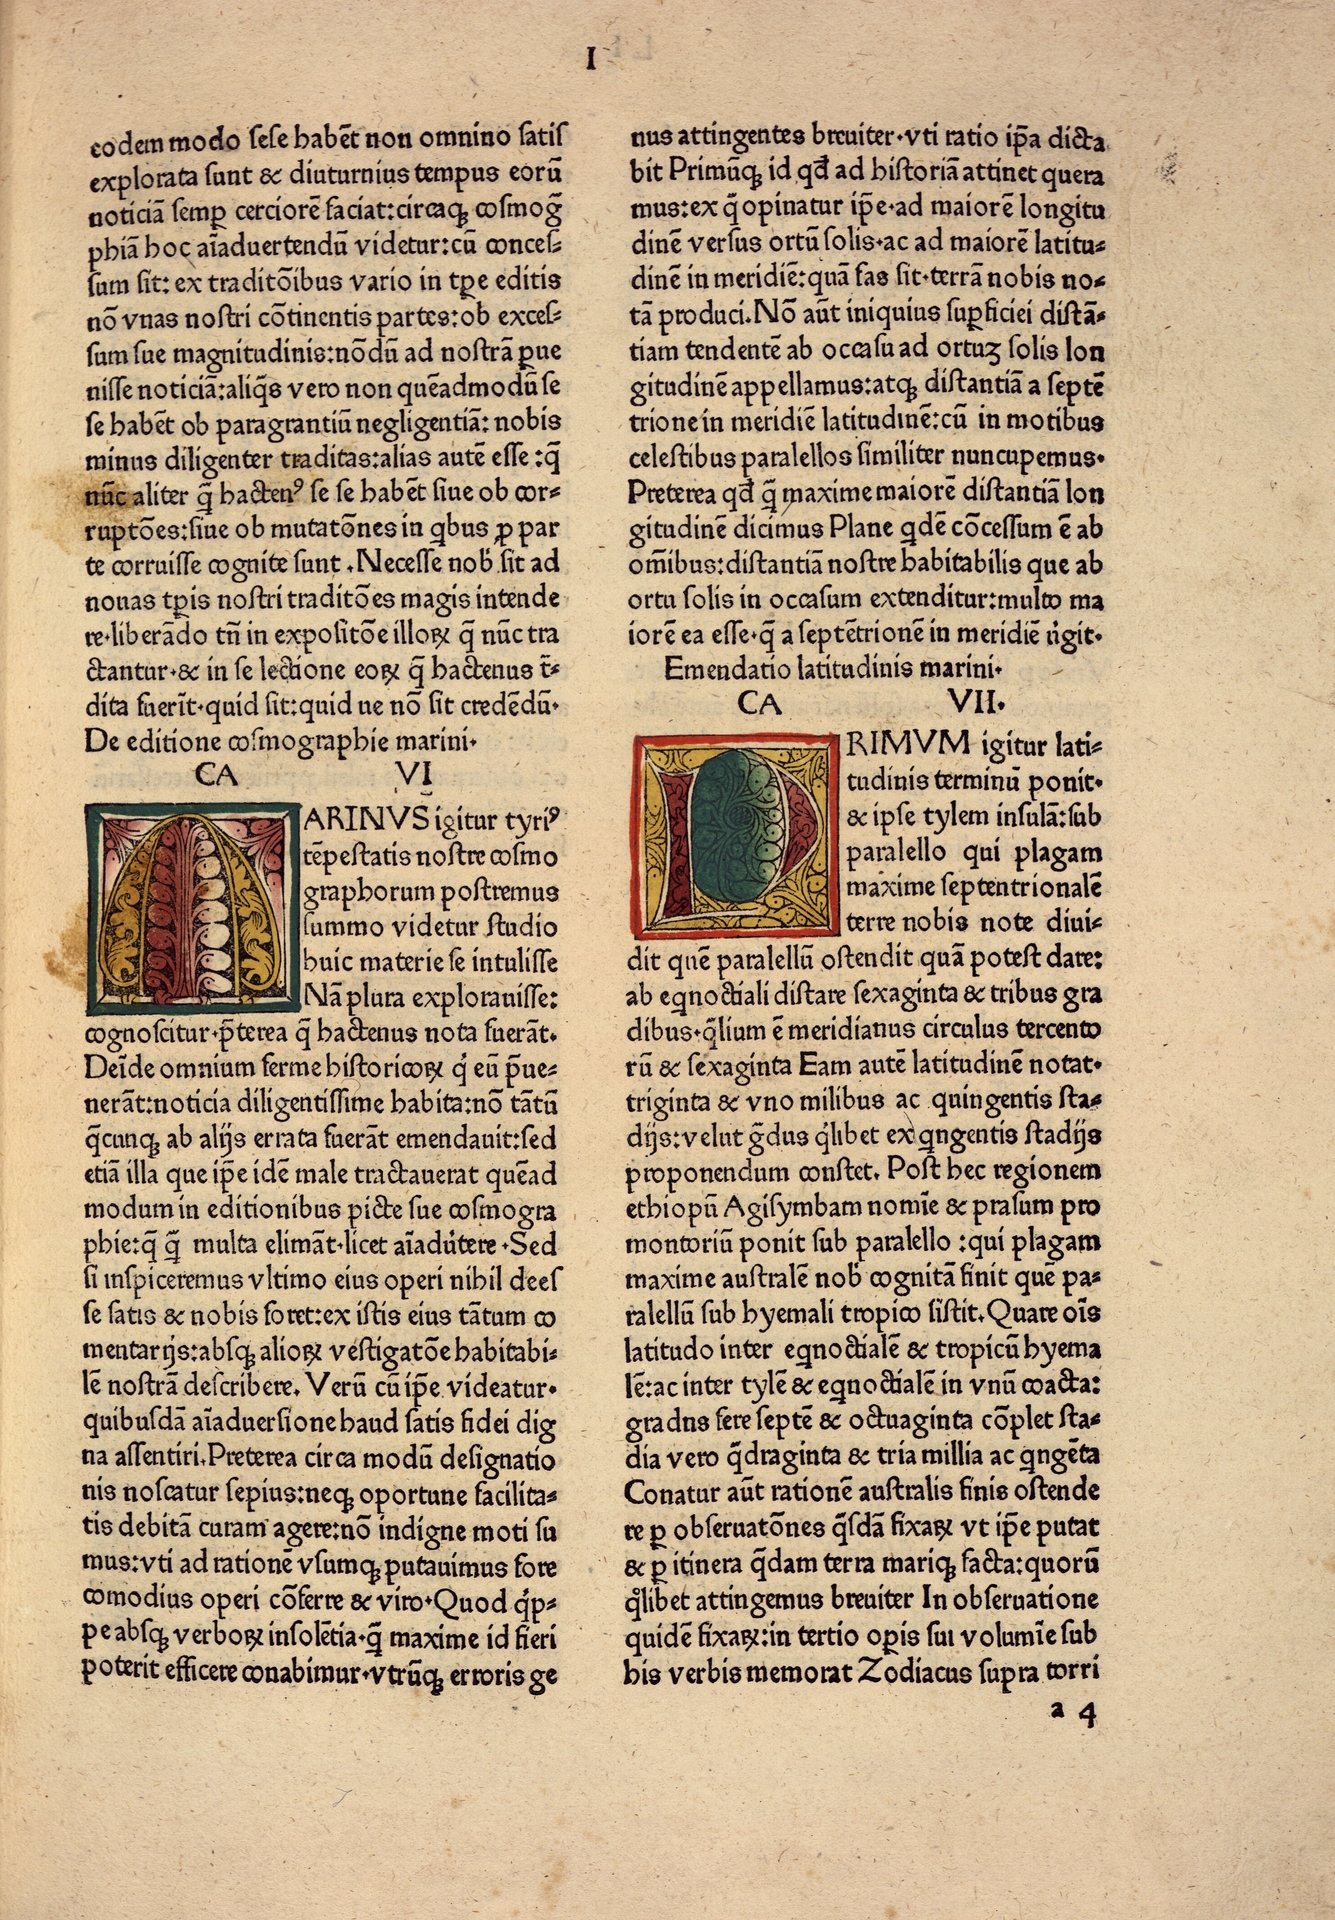 I
eodem modo sese habēt non omnino satis
explorata sunt & diuturnius tempus eorū
noticiā semꝑ cerciorē faciat:circaqꝫ cosmog̃
phiā hoc aīaduertendū videtur:cū conces⸗
sum sit: ex traditōibus vario in tꝑe editis
nō vnas nostri cōtinentis partes:ob exces⸗
sum sue magnitudinis:nōdū ad nostrā ꝑue
nisse noticiā:aliq̄s vero non quēadmodū se
se habēt ob paragrantiū negligentiā: nobis
minus diligenter traditas:alias autē esse :q̄
nūc aliter q̄ hactenꝰ se se habēt siue ob cor⸗
ruptōes:siue ob mutatōnes in qbus ꝓ par
te corruisse cognite sunt .Necesse nob̓ sit ad
nouas tꝑis nostri traditōes magis intende
re·liberādo tn̄ in expositōe illoꝝ q̄ nūc tra
ctantur·& in se lectione eoꝝ q̄ hactenus t̄⸗
dita fuerīt·quid sit:quid ue nō sit credēdū·
De editione cosmographie marini·
CA VI
MARINVS igitur tyriꝰ
tēpestatis nostre cosmo
graphorum postremus
summo videtur studio
huic materie se intulisse
Nā plura explorauisse:
cognoscitur·p̄terea q̄ hactenus nota fuerāt·
Deīde omnium ferme historicoꝝ q̓ eū p̄ue⸗
nerāt:noticia diligentissime habita:nō tātū
q̄cunqꝫ ab alijs errata fuerāt emendauit:sed
etiā illa que ip̄e idē male tractauerat quēad
modum in editionibus picte sue cosmogra
phie:q̄ q̄ multa elimāt·licet aīadu̓tere ·Sed
si inspiceremus vltimo eius operi nihil dees
se satis & nobis foret:ex istis eius tātum co
mentarijs:absqꝫ alioꝝ vestigatōe habitabi⸗
lē nostrā describere. Verū cū ip̄e videatur·
quibusdā aīaduersione haud satis fidei dig
na assentiri.Preterea circa modū designatio
nis noscatur sepius:neqꝫ oportune facilita⸗
tis debitā curam agere:nō indigne moti su
mus:vti ad rationē vsumqꝫ putauimus fore
comodius operi cōferre & viro·Quod q̓p⸗
pe absqꝫ verboꝝ insolētia·q̄ maxime id fieri
poterit efficere conabimur·vtrūqꝫ erroris ge
nus attingentes breuiter·vti ratio ip̄a dicta
bit Primūqꝫ id qd̄ ad historiā attinet quera
mus:ex q̄ opinatur ip̄e·ad maiorē longitu
dinē versus ortū solis·ac ad maiorē latitu⸗
dinē in meridiē:quā fas sit·terrā nobis no⸗
tā produci.Nō aūt iniquius suꝑficiei distā⸗
tiam tendentē ab occasu ad ortuꝫ solis lon
gitudinē appellamus:atqꝫ distantiā a septē
trione in meridiē latitudinē:cū in motibus
celestibus paralellos similiter nuncupemus·
Preterea qd̄ q̄ maxime maiorē distantiā lon
gitudinē dicimus Plane qdē cōcessum ē ab
om̄ibus:distantiā nostre habitabilis que ab
ortu solis in occasum extenditur:multo ma
iorē ea esse·q̄ a septētrionē in meridiē u̓git·
Emendatio latitudinis marini·
CA VII.
PRIMVM igitur lati⸗
tudinis terminū ponit·
& ipse tylem insulā:sub
paralello qui plagam
maxime septentrionalē
terre nobis note diui⸗
dit quē paralellū ostendit quā potest date:
ab eqnoctiali distare sexaginta & tribus gra
dibus·q̄lium ē meridianus circulus tercento
rū & sexaginta Eam autē latitudinē notat·
triginta & vno milibus ac quingentis sta⸗
dijs:velut g̃dus q̓libet ex qngentis stadijs
proponendum constet. Post hec regionem
ethiopū Agisymbam nomīe & prasum pro
montoriū ponit sub paralello :qui plagam
maxime australē nob̓ cognitā finit quē pa⸗
ralellū sub hyemali tropico sistit.Quare oīs
latitudo inter eqnoctialē & tropicū hyema
lē:ac inter tylē & eqnoctialē in vnū coacta:
gradns fere septē & octuaginta cōplet sta⸗
dia vero q̄draginta & tria millia ac qngēta
Conatur aūt rationē australis finis ostende
re ꝑ obseruatōnes q̄sdā fixaꝝ vt ip̄e putat
& ꝑ itinera q̄dam terra mariqꝫ facta:quorū
q̓libet attingemus breuiter In obseruatione
quidē fixaꝝ:in tertio oꝑis sui volumīe sub
his verbis memorat Zodiacus supra torri
a 4